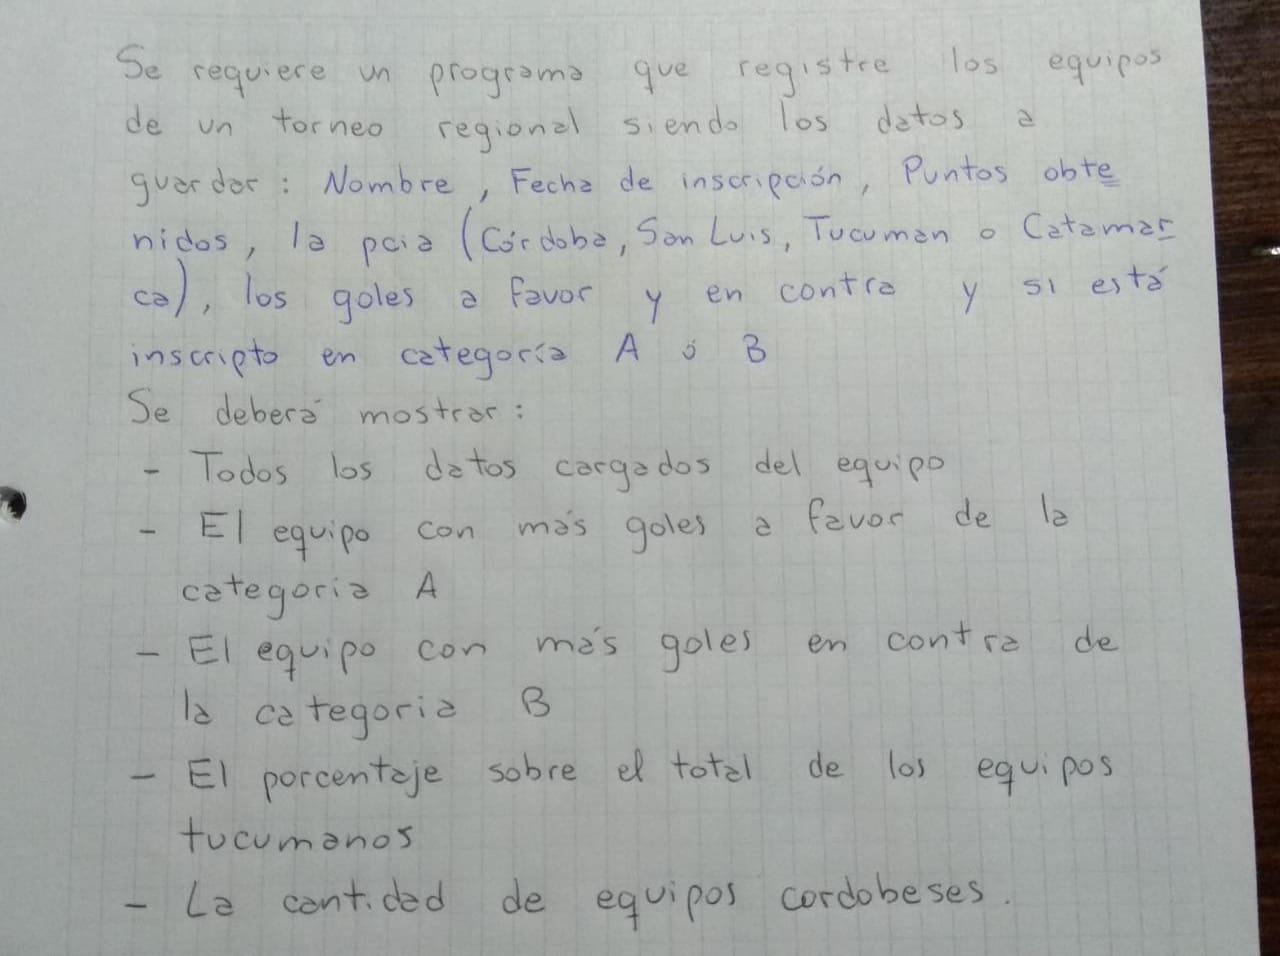 Se requiere un programa que registre los equipos
de un torneo regional siendo los datos a
guardar: Nombre, Fecha de inscripción, Puntos obte
nidos, la pcia (Córdoba, San Luis, Tucuman o Catamar
ca), los goles a favor y en contra y si está
inscripto en categoría A ó B
Se deberá mostrar:
- Todos los datos cargados del equipo
- El equipo con más goles a favor de la
categoria A
- El equipo con más goles en contra de
la categoria B
- El porcentaje sobre el total de los equipos
tucumanos
- La cantidad de equipos cordobeses.